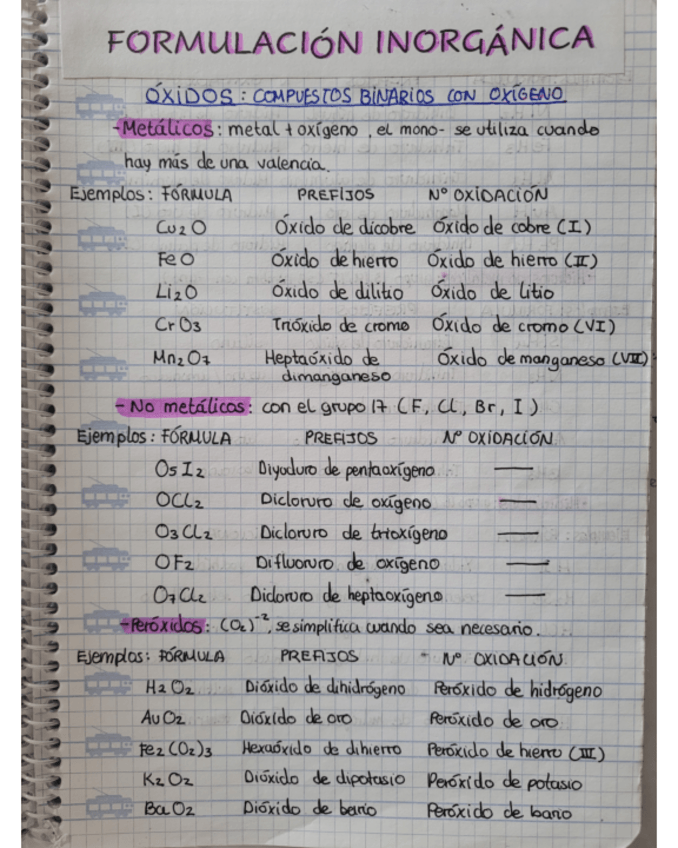 FORMULACIÓN INORGÁNICA
ÓXIDOS: COMPUESTOS BINARIOS CON OXÍGENO
-Metálicos: metal + oxígeno, el mono- se utiliza cuando
hay más de una valencia.
Ejemplos: FÓRMULA PREFIJOS Nº OXIDACIÓN
Cu₂O Óxido de dicobre Óxido de cobre (I)
FeO Óxido de hierro Óxido de hierro (II)
Li₂O Óxido de dilitio Óxido de litio
CrO₃ Trióxido de cromo Óxido de cromo (VI)
Mn₂O₇ Heptaóxido de Óxido de manganeso (VII)
dimanganeso
-No metálicos: con el grupo 17 (F, Cl, Br, I)
Ejemplos: FÓRMULA PREFIJOS Nº OXIDACIÓN
O₅I₂ Diyoduro de pentaoxígeno —
OCl₂ Dicloruro de oxígeno —
O₃Cl₂ Dicloruro de trioxígeno —
OF₂ Difluoruro de oxígeno —
O₇Cl₂ Dicloruro de heptaoxígeno —
-Peróxidos: (O₂)⁻², se simplifica cuando sea necesario.
Ejemplos: FÓRMULA PREFIJOS Nº OXIDACIÓN
H₂O₂ Dióxido de dihidrógeno Peróxido de hidrógeno
AuO₂ Dióxido de oro Peróxido de oro
Fe₂(O₂)₃ Hexaóxido de dihierro Peróxido de hierro (III)
K₂O₂ Dióxido de dipotasio Peróxido de potasio
BaO₂ Dióxido de bario Peróxido de bario